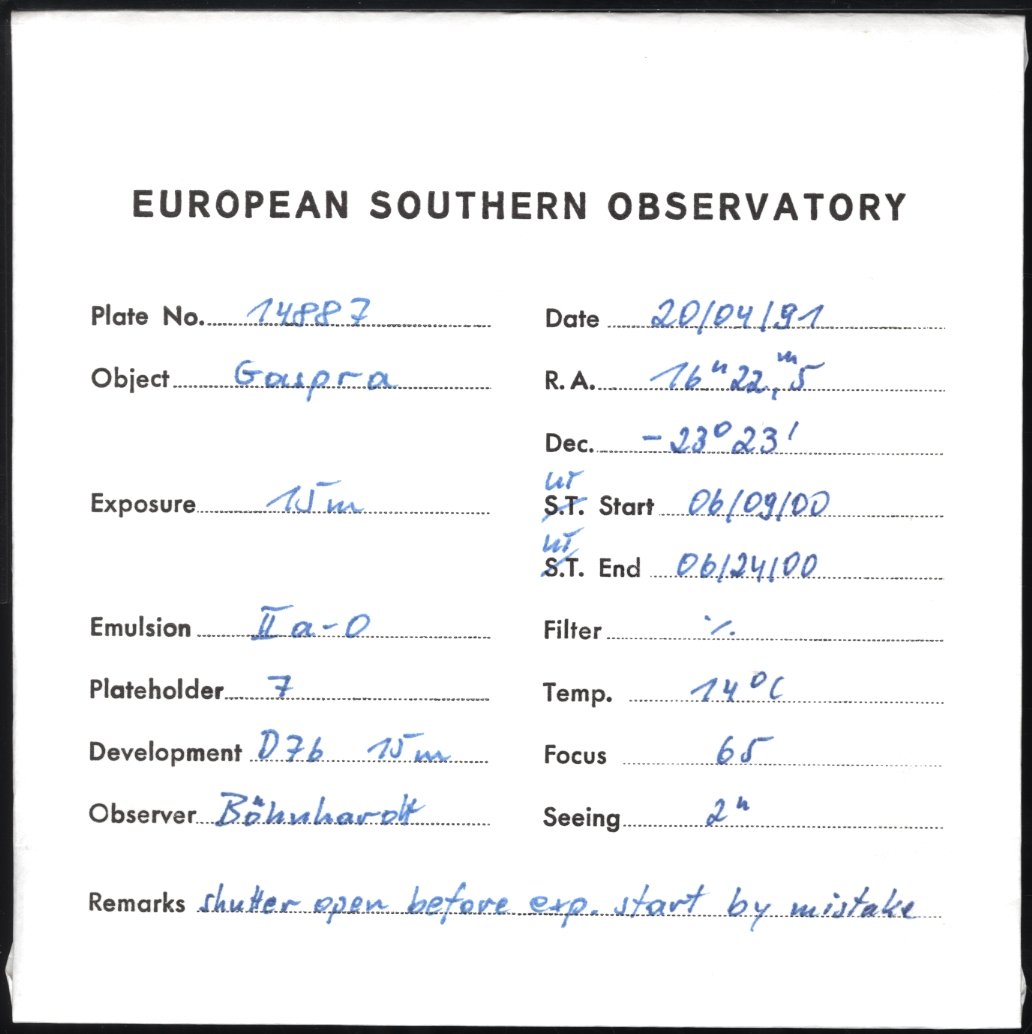 EUROPEAN SOUTHERN OBSERVATORY
Plate No. 14887 Date 20/04/91
Object Gaspra R.A. 16h 22,m5
Dec. -23° 23'
UT
Exposure 15m S.T. Start 06/09/00
UT
S.T. End 06/24/00
Emulsion IIa-O Filter ./.
Plateholder 7 Temp. 14°C
Development D76 15m Focus 65
Observer Böhnhardt Seeing 2"
Remarks shutter open before exp. start by mistake